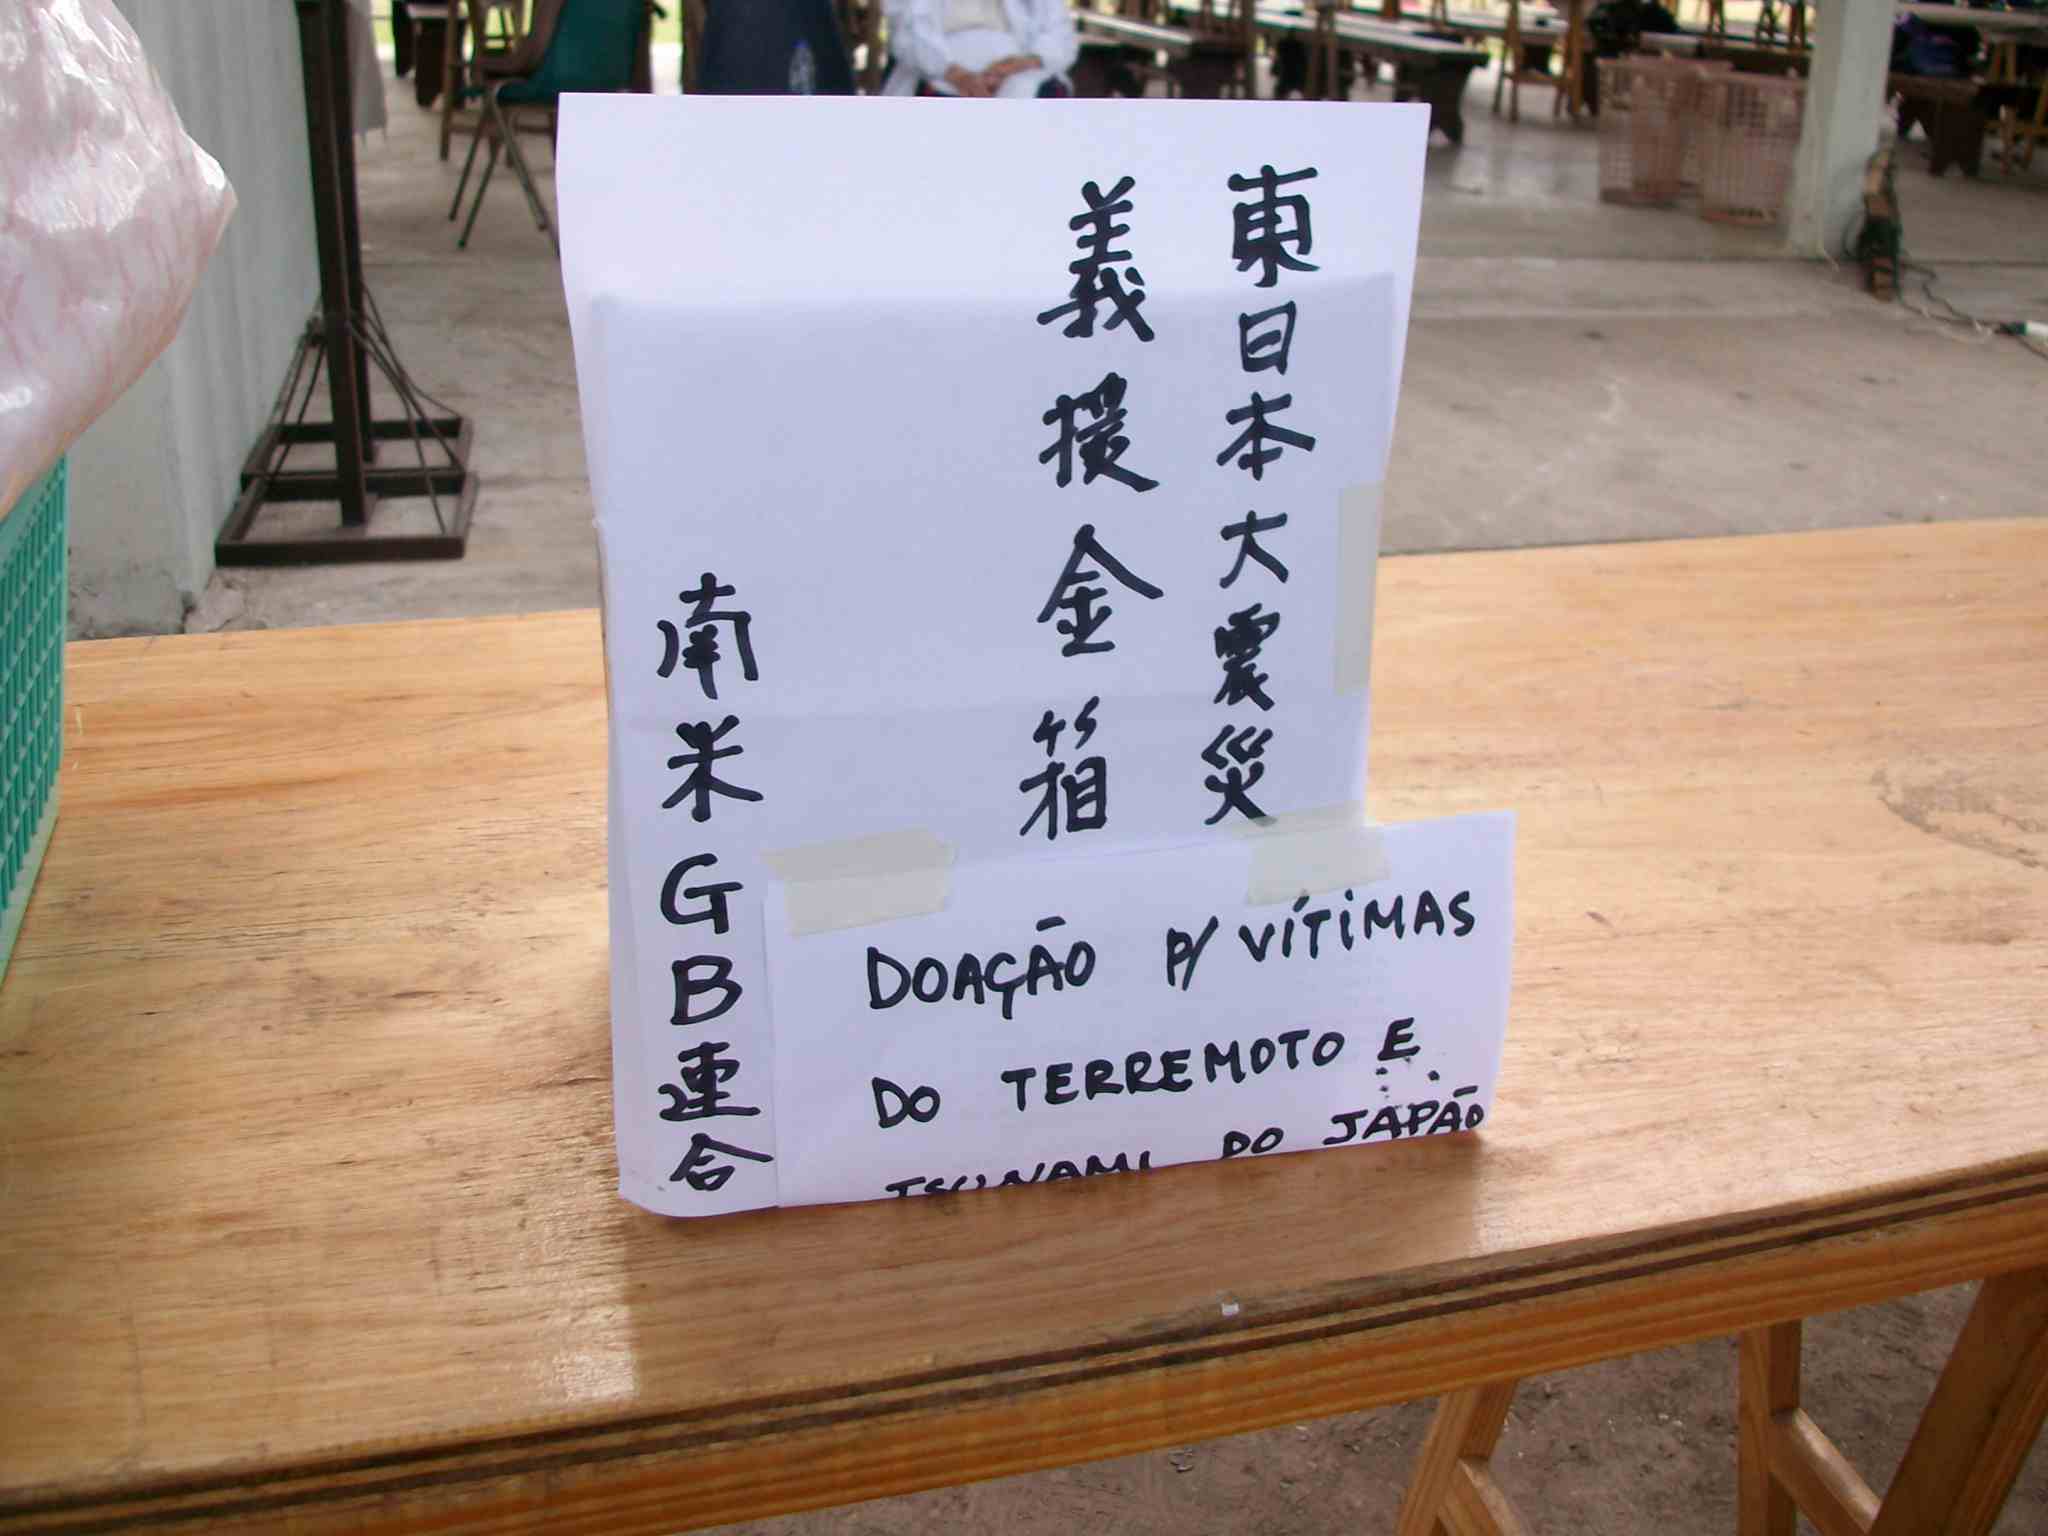 東日本大震災
義援金箱
南米GB連合
DOAÇÃO P/ VÍTIMAS
DO TERREMOTO E
TSUNAMI DO JAPÃO